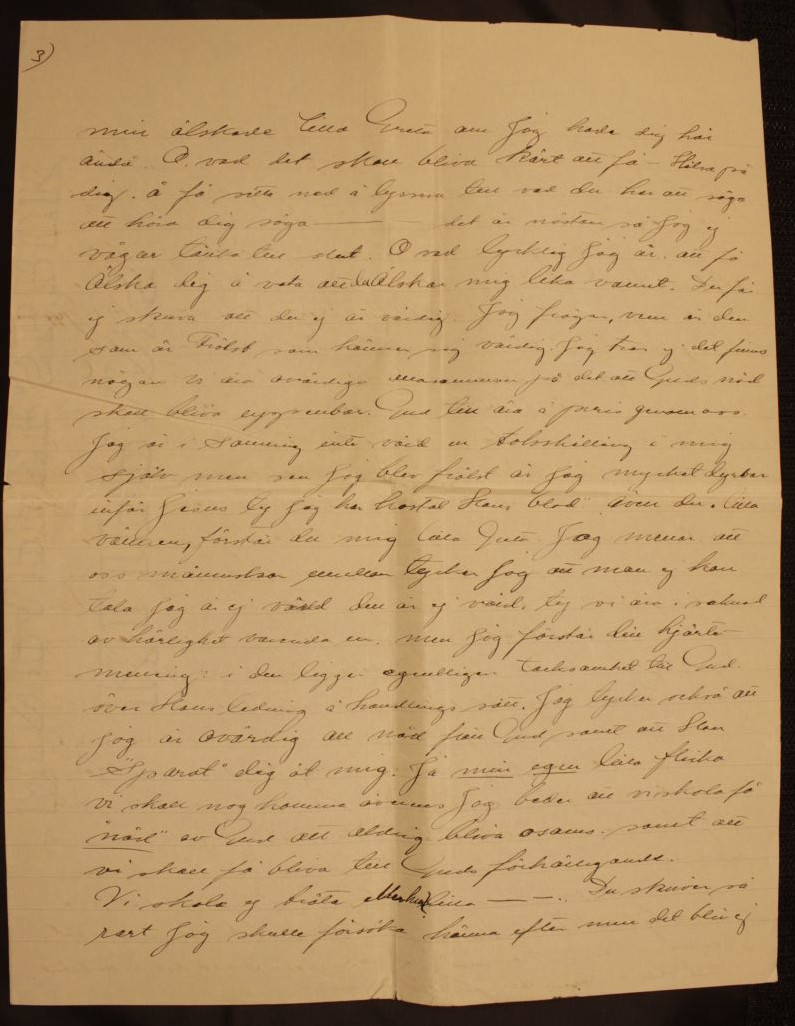 3)
min älskade lilla Greta om Jag hade dig här
ändå. O, vad det skall bliva kärt att få
dig. å få sitta ned å lyssna till vad du har att säga
att höra dig säga ——— det är nästan så Jag ej
vågar tänka till slut. O vad lycklig Jag är att få
Älska dig å veta att du Älskar mig lika varmt. Du får
ej skriva att du ej är värdig. Jag frågar, vem är den
som är Frälst som känner sig värdig. Jag tror ej det finns
någon vi äro ovärdiga allasamman på det att Guds nåd
skall bliva uppenbar. Gud till ära å pris genom oss.
Jag är i Sanning inte värd en tolvskilling i mig
själv men sen Jag blev frälst är Jag mycket dyrbar
inför Jesus ty Jag har kostat Hans blod" även du. lilla
vännen, förstår du mig lilla Greta. Jag menar att
oss människor emellan tycker Jag att man ej kan
tala Jag är ej värd den är ej värd. ty vi äro i saknad
av härlighet varenda en. men Jag förstår din hjärte-
mening: i den ligger egentligen tacksamhet till Gud.
över Hans ledning å handlings sätt. Jag tycker också att
Jag är ovärdig all nåd från Gud samt att Han
"Sparat" dig åt mig. Ja min egen lilla flicka
vi skall nog komma överens Jag beder att vi skola få
"nåd" av Gud att aldrig bliva osams. samt att
vi skall få bliva till Guds förhärligande.
Vi skola ej lilla — —. Du skriver så
rart Jag skulle försöka känna efter men det blir ej